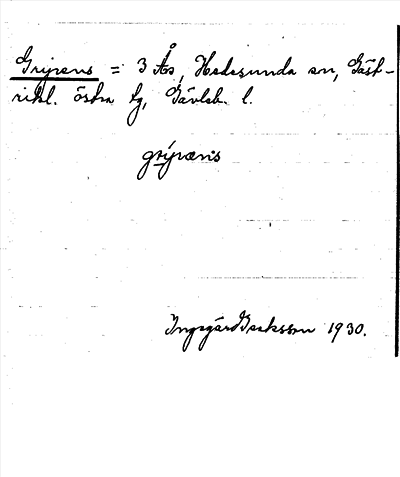 Gripens = 3 Ås, Hedesunda sn, Gäst-
rikl. östra tg, Gävleb. l.
grípæns
Ingegärd Isaksson 1930.